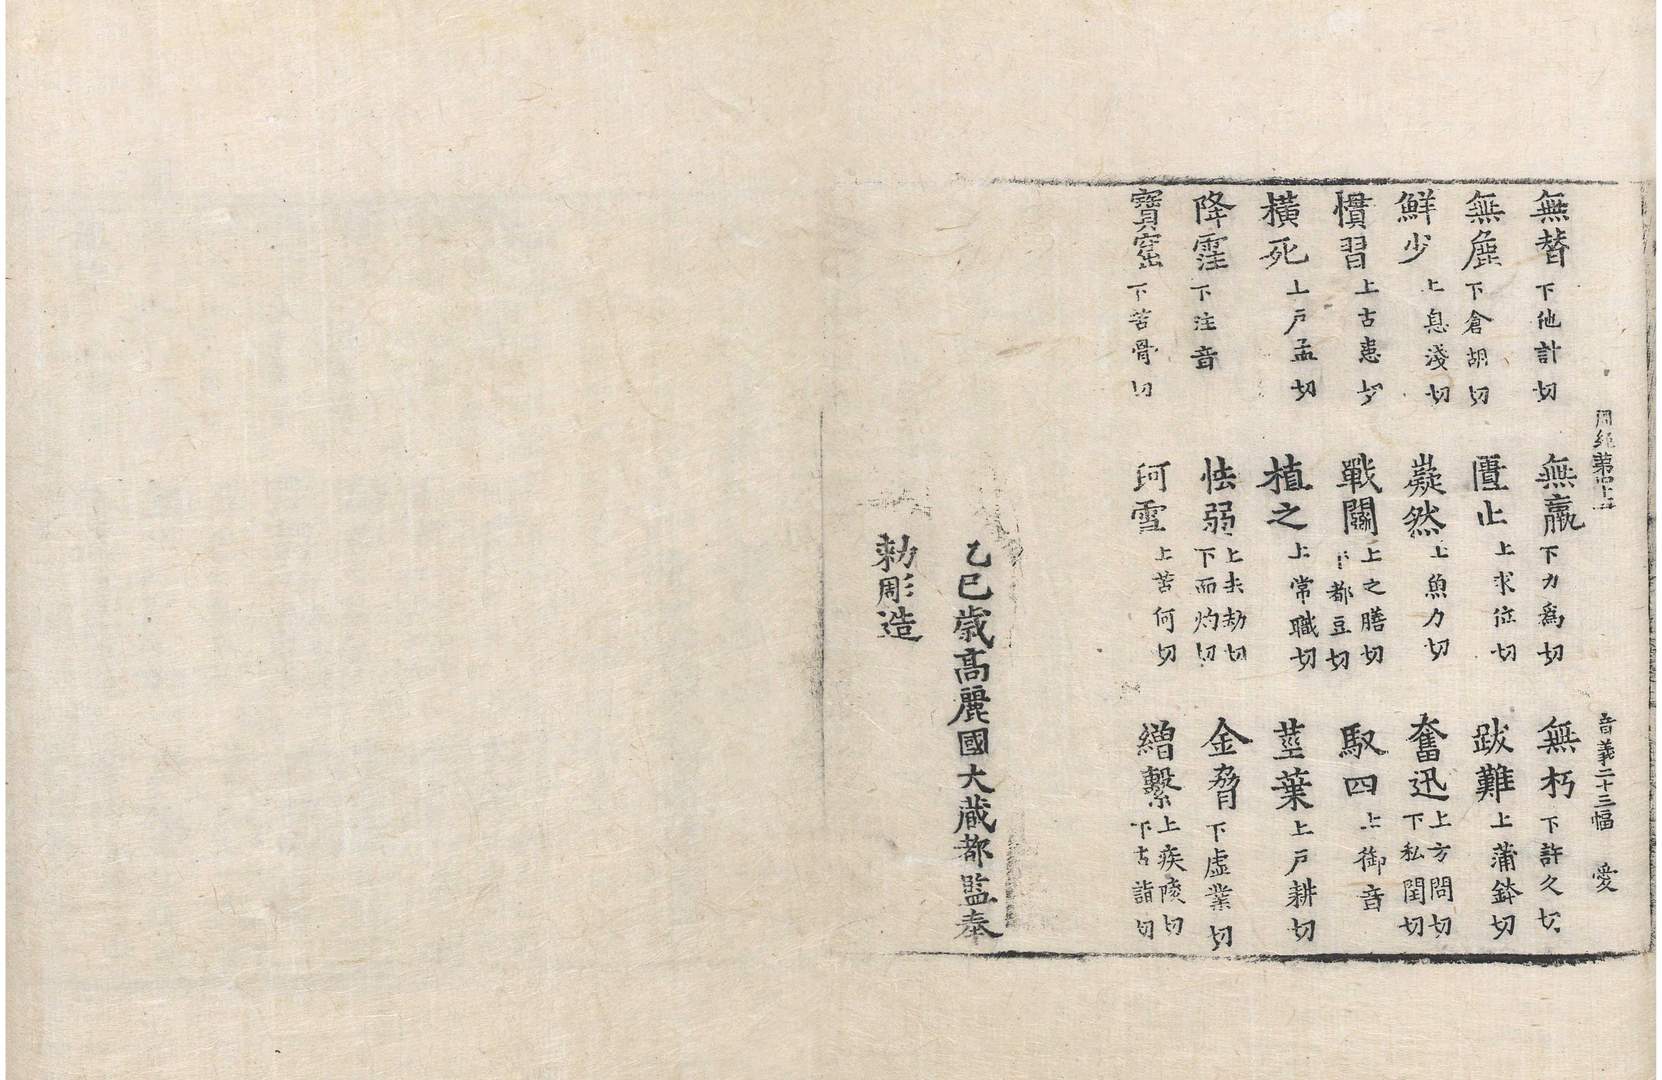 無替下他計切 無羸下力爲切 無朽下許久切
無麁下倉胡切 匱止上求位切 跋難上蒲鉢切
鮮少上息淺切 嶷然上魚力切 奮迅上方問切下私閏切
慣習上古患切 戰鬭上之膳切下都豆切 馭四上御音
橫死上戶孟切 植之上常職切 莖葉上戶耕切
降霔下注音 怯弱上去劫切下而灼切 金脅下虛業切
寶窟下苦骨切 珂雪上苦何切 繒繫上疾陵切下古詣切
乙巳歲高麗國大藏都監奉
勅彫造
音義二十三幅 愛